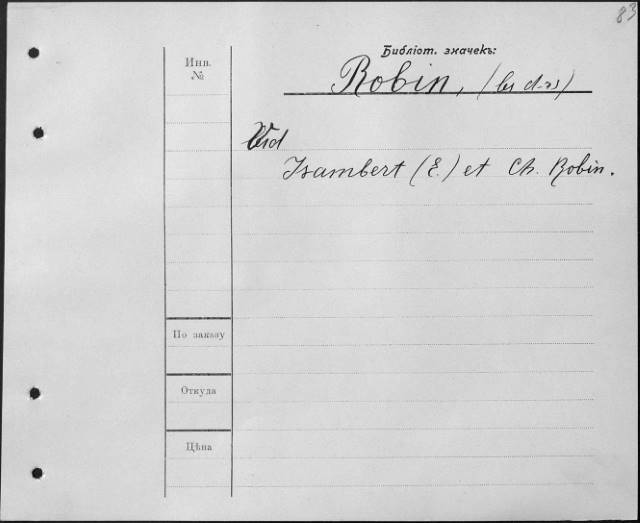 83
Библіот. значекъ:
Инв.
№
Robin, (les d-rs)
Vid
Isambert (E.) et Ch. Robin.
По заказу
Откуда
Цѣна